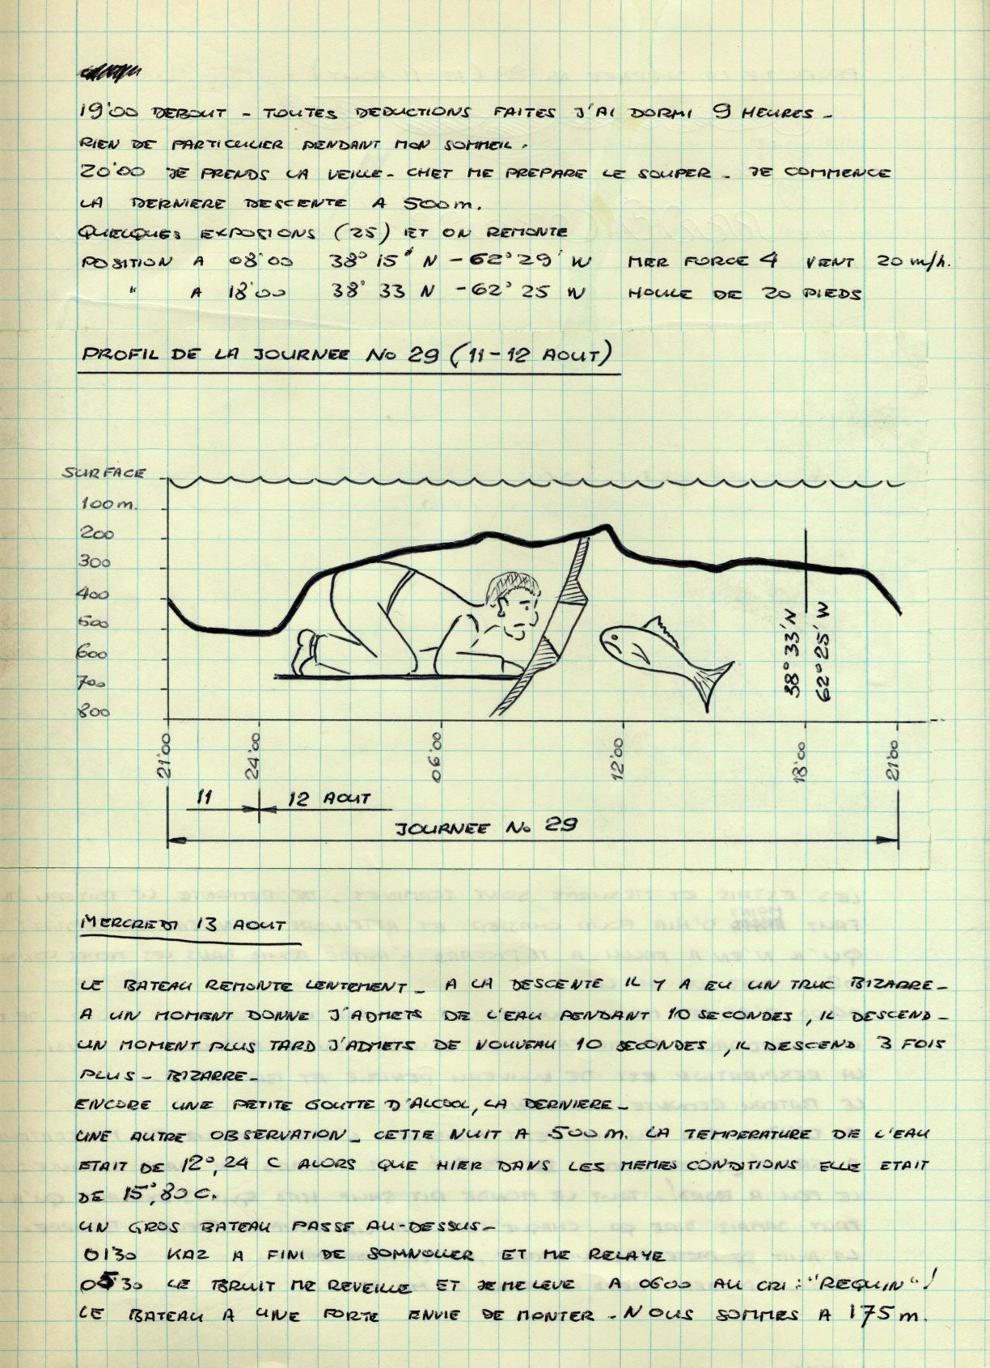 19'00 DEBOUT - TOUTES DEDUCTIONS FAITES J'AI DORMI 9 HEURES -
RIEN DE PARTICULIER PENDANT MON SOMMEIL.
20'00 JE PRENDS LA VEILLE - CHET ME PREPARE LE SOUPER - JE COMMENCE
LA DERNIERE DESCENTE A 500m.
QUELQUES EXPOSIONS (25) ET ON REMONTE
POSITION A 08'00 38° 15' N - 62° 29' W MER FORCE 4 VENT 20 m/h.
" A 18'00 38° 33 N - 62° 25 W HOULE DE 20 PIEDS
PROFIL DE LA JOURNEE No 29 (11-12 AOUT)
SURFACE
100m.
200
300
400
500
600
700
800
38° 33' N
62° 25' W
21'00 24'00 06'00 12'00 18'00 21'00
11 12 AOUT
JOURNEE No 29
MERCREDI 13 AOUT
LE BATEAU REMONTE LENTEMENT - A LA DESCENTE IL Y A EU UN TRUC BIZARRE -
A UN MOMENT DONNE J'ADMETS DE L'EAU PENDANT 10 SECONDES, IL DESCEND -
UN MOMENT PLUS TARD J'ADMETS DE NOUVEAU 10 SECONDES, IL DESCEND 3 FOIS
PLUS - BIZARRE -
ENCORE UNE PETITE GOUTTE D'ALCOOL, LA DERNIERE -
UNE AUTRE OBSERVATION - CETTE NUIT A 500 m. LA TEMPERATURE DE L'EAU
ETAIT DE 12°,24 C ALORS QUE HIER DANS LES MEMES CONDITIONS ELLE ETAIT
DE 15°,80 C.
UN GROS BATEAU PASSE AU-DESSUS -
0130 KAZ A FINI DE SOMNOLLER ET ME RELAYE
0530 LE BRUIT ME REVEILLE ET JE ME LEVE A 0600 AU CRI : "REQUIN" !
LE BATEAU A UNE FORTE ENVIE DE MONTER - NOUS SOMMES A 175 m.